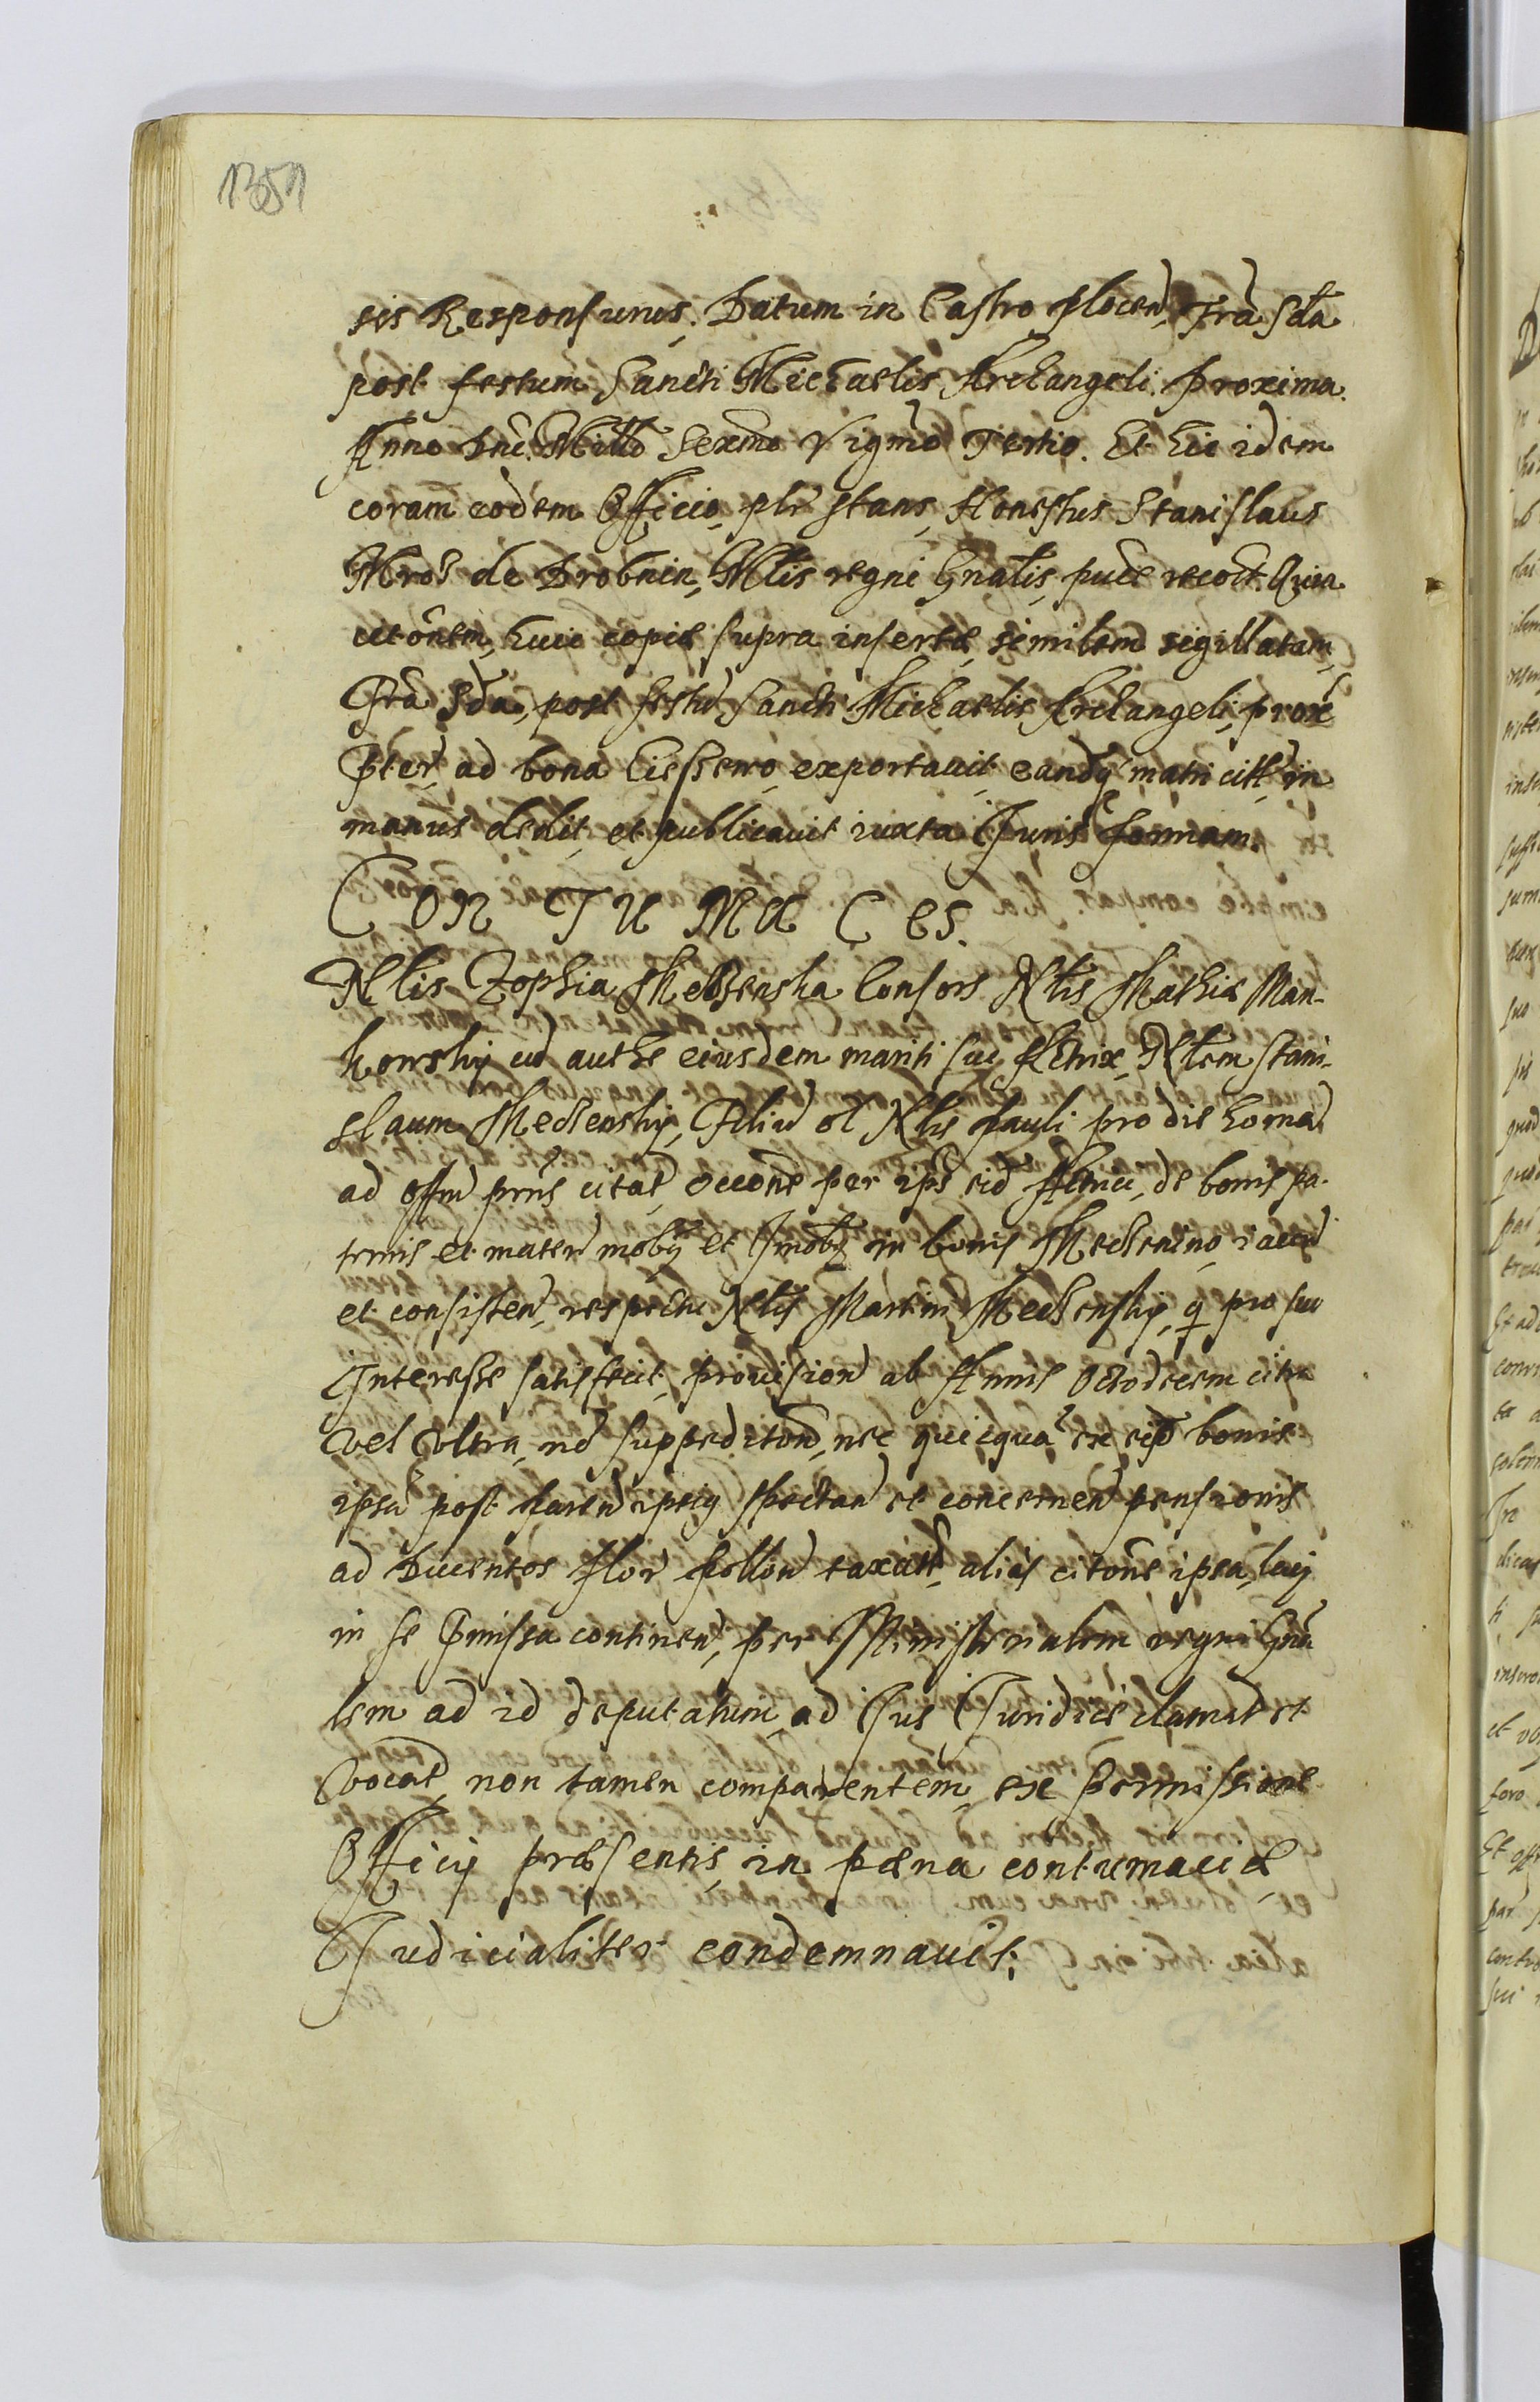 1351
sis Responsurus. Datum in Castro Plocen, Fra Sda
post festum Sancti Michaelis Archangeli proxima.
Anno Dni Millo Sexmo Vigmo Tertio. Et hic idem
coram eodem Officio, plr stans, Honestus Stanislaus
Mroz de Drobnin, Mlis regni Gnalis, puce recoct. Quia
citonem, huic copiæ supra insertæ, similem sigillatam,
Fra Sda, post festu Sancti Michaelis Archangeli, prox
Pter, ad bona exportauit, eandq matri citt, in
manus dedit, et publicauit iuxta Juris formam.
CONTUMACES.
Nlis Zophia Mebzenska Consors Nlis Mathiæ Man-
kowskij cu authe eiusdem mariti sui Actrix, Nlem Stani-
slaum Mechenskij, Filiu ol Nlis Pauli pro die horna
ad Offm prns citat occone per ips eid Actrici, de bonis pa-
ternis et mater mobq et Jmobq in bonis Mechenino, iacen
et consisten, respectu Nlis Martini Mechenskij, q pro suo
Interesse satisfecit, prouision ab Annis Octodecem citra
vel vltra, no suppediton, nec quicqua ex eisd bonis
ipsu post Paren ipsig spectan et concernen pensionis
ad Ducentos flor Pollon taxatt, alias citone ipsa, lacq
in se Pmissa continen, per Ministerialem regni Gna
lem ad id deputatum, ad Jus Juridice clamat et
vocat, non tamen comparentem, ex permissione
Officij præsentis, in pæna contumaciæ
Judicialiter condemnauit;